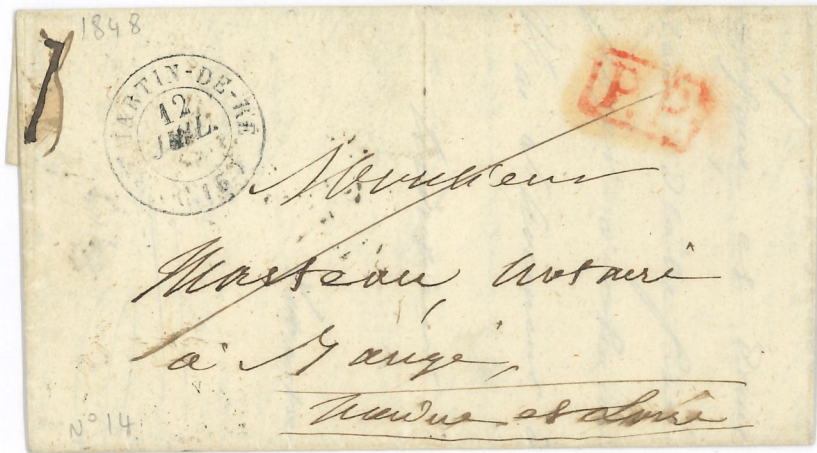 1848
ST MARTIN-DE-RÉ
12
JUIL.
P.P.
Monsieur
Masteau, notaire
à Baugé,
Maine et Loire
N° 14